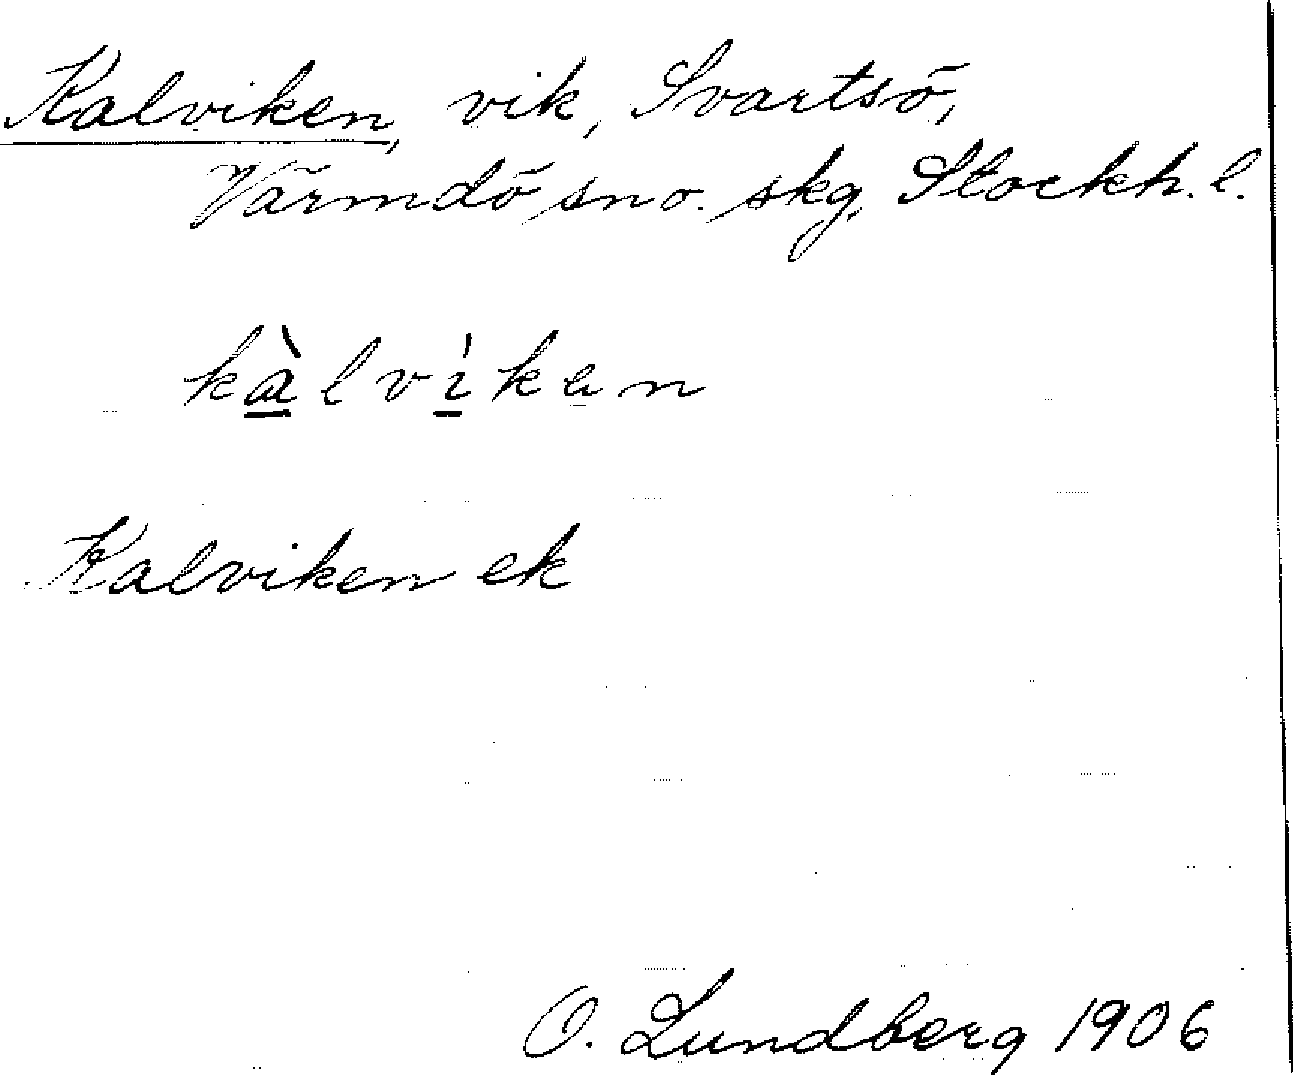 Kalviken, vik, Svartsö,
Värmdö sno. skg, Stockh. l.
kàlvìkɐn
Kalviken ek
O. Lundberg 1906